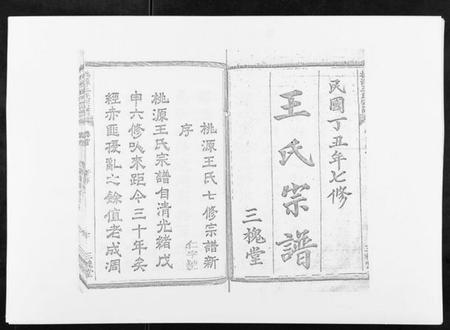 民國丁丑年七修
王氏宗譜
三槐堂
桃源王氏七修宗譜新
序
桃源王氏宗譜自清光緒戊
申六修以來距今三十年矣
經赤匪擾亂之餘值老成凋